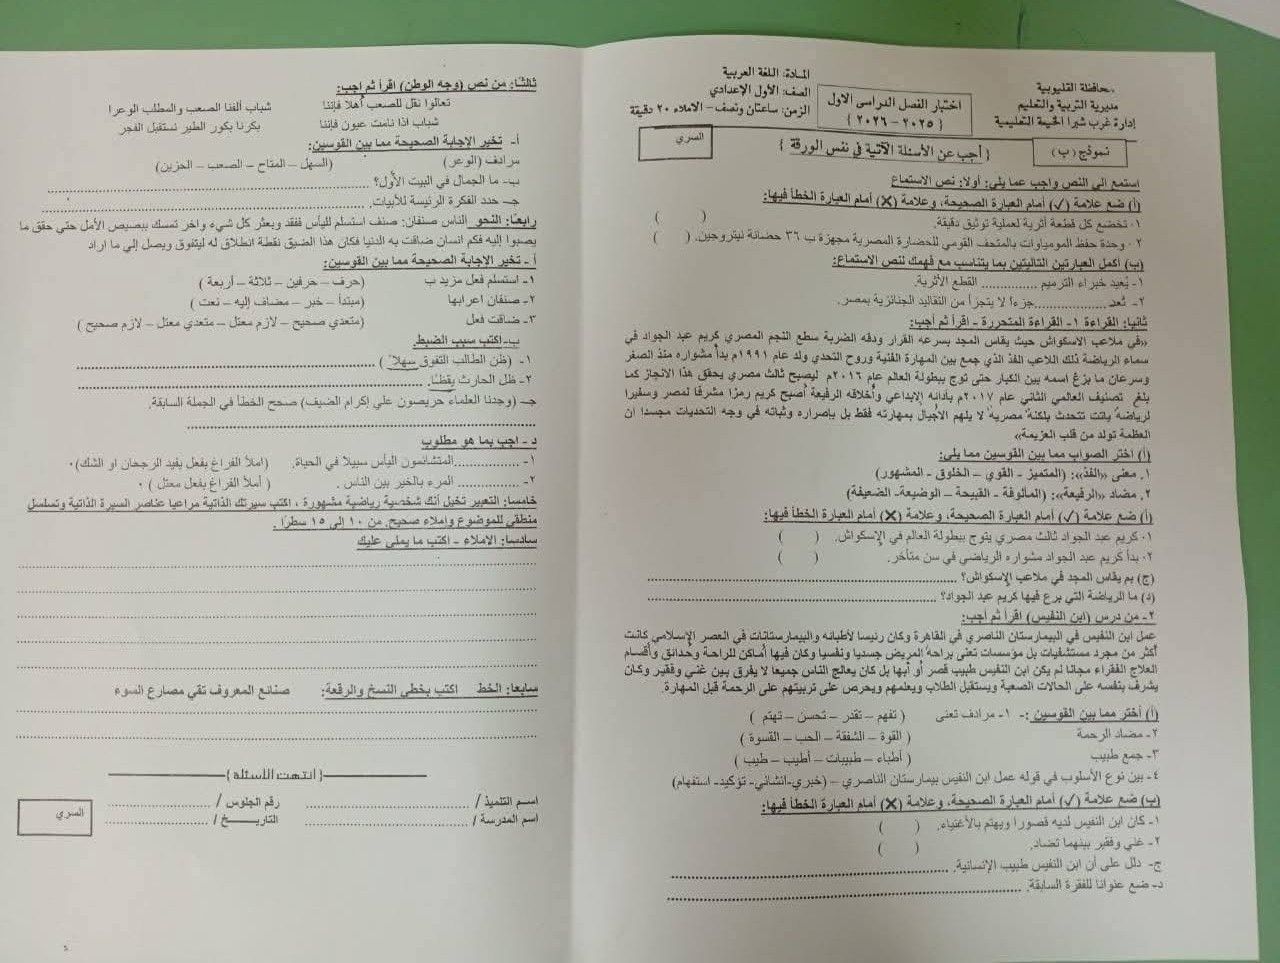 محافظة القليوبية
مديرية التربية والتعليم
إدارة غرب شبرا الخيمة التعليمية
نموذج (ب)
اختبار الفصل الدراسى الاول
{ ٢٠٢٥ – ٢٠٢٦ }
المادة: اللغة العربية
الصف: الأول الإعدادي
الزمن: ساعتان ونصف – الاملاء ٢٠ دقيقة
{ أجب عن الأسئلة الآتية فى نفس الورقة }
السري
استمع الى النص واجب عما يلى: أولا: نص الاستماع
(أ) ضع علامة (✓) أمام العبارة الصحيحة، وعلامة (✗) أمام العبارة الخطأ فيها:
١- تخضع كل قطعة أثرية لعملية توثيق دقيقة. ( )
٢- وحدة حفظ المومياوات بالمتحف القومي للحضارة المصرية مجهزة ب ٣٦ حضانة نيتروجين. ( )
(ب) أكمل العبارتين التاليتين بما يتناسب مع فهمك لنص الاستماع:
١- يُعيد خبراء الترميم .............. القطع الأثرية.
٢- تُعد..................جزءا لا يتجزأ من التقاليد الجنائزية بمصر.
ثانيا: القراءة ١- القراءة المتحررة - اقرأ ثم أجب:
«في ملاعب الاسكواش حيث يقاس المجد بسرعه القرار ودقه الضربة سطع النجم المصري كريم عبد الجواد في
سماء الرياضة ذلك اللاعب الفذ الذي جمع بين المهارة الفنية وروح التحدي ولد عام ١٩٩١م بدأ مشواره منذ الصغر
وسرعان ما بزغ اسمه بين الكبار حتى توج ببطولة العالم عام ٢٠١٦م ليصبح ثالث مصري يحقق هذا الانجاز كما
بلغ تصنيف العالمي الثاني عام ٢٠١٧م بأدائه الإبداعي وأخلاقه الرفيعة أصبح كريم رمزا مشرفا لمصر وسفيرا
لرياضة باتت تتحدث بلكنة مصرية لا يلهم الأجيال بمهارته فقط بل بإصراره وثباته في وجه التحديات مجسدا ان
العظمة تولد من قلب العزيمة»
(أ) اختر الصواب مما بين القوسين مما يلى:
١. معنى «الفذ»: (المتميز - القوي – الخلوق - المشهور)
٢. مضاد «الرفيعة»: (المألوفة - القبيحة – الوضيعة- الضعيفة)
(أ) ضع علامة (✓) أمام العبارة الصحيحة، وعلامة (✗) أمام العبارة الخطأ فيها:
١- كريم عبد الجواد ثالث مصري يتوج ببطولة العالم في الإسكواش. ( )
٢- بدأ كريم عبد الجواد مشواره الرياضي في سن متأخر. ( )
(ج) بم يقاس المجد في ملاعب الإسكواش؟ ..................................................
(د) ما الرياضة التي برع فيها كريم عبد الجواد؟ ..................................................
٢- من درس (ابن النفيس) اقرأ ثم أجب:
عمل ابن النفيس في البيمارستان الناصري في القاهرة وكان رئيسا لأطبائه والبيمارستانات في العصر الإسلامي كانت
أكثر من مجرد مستشفيات بل مؤسسات تعنى براحة المريض جسديا ونفسيا وكان فيها أماكن للراحة وحدائق وأقسام
العلاج الفقراء مجانا لم يكن ابن النفيس طبيب قصر أو أبها بل كان يعالج الناس جميعا لا يفرق بين غني وفقير وكان
يشرف بنفسه على الحالات الصعبة ويستقبل الطلاب ويعلمهم ويحرص على تربيتهم على الرحمة قبل المهارة.
(أ) أختر مما بين القوسين :- ١- مرادف تعنى ( تفهم – تقدر – تحسن – تهتم )
٢- مضاد الرحمة ( القوة – الشفقة – الحب – القسوة )
٣- جمع طبيب ( أطباء – طبيبات – أطيب – طيب )
٤- بين نوع الأسلوب في قوله عمل ابن النفيس بيمارستان الناصري – (خبري-انشائي- توكيد- استفهام)
(ب) ضع علامة (✓) أمام العبارة الصحيحة، وعلامة (✗) أمام العبارة الخطأ فيها:
١- كان ابن النفيس لديه قصورا ويهتم بالأغنياء. ( )
٢- غني وفقير بينهما تضاد. ( )
ج- دلل على أن ابن النفيس طبيب الإنسانية. ..................................................
د- ضع عنوانا للفقرة السابقة. ..................................................
ثالثًا: من نص (وجه الوطن) اقرأ ثم أجب:
تعالوا نقل للصعب أهلا فإننا شباب ألفنا الصعب والمطلب الوعرا
شباب اذا نامت عيون فإننا بكرنا بكور الطير نستقبل الفجر
أ- تخير الإجابة الصحيحة مما بين القوسين:
مرادف (الوعر) (السهل – المتاح – الصعب – الحزين)
ب- ما الجمال في البيت الأول؟ ..................................................
جـ- حدد الفكرة الرئيسة للأبيات. ..................................................
رابعًا: النحو الناس صنفان: صنف استسلم لليأس ففقد وبعثر كل شيء واخر تمسك ببصيص الأمل حتى حقق ما
يصبوا إليه فكم انسان ضاقت به الدنيا فكان هذا الضيق نقطة انطلاق له ليتفوق ويصل إلي ما اراد
أ - تخير الإجابة الصحيحة مما بين القوسين:
١- استسلم فعل مزيد ب (حرف – حرفين – ثلاثة – أربعة )
٢- صنفان اعرابها (مبتدأ – خبر – مضاف إليه – نعت )
٣- ضاقت فعل (متعدي صحيح – لازم معتل – متعدي معتل – لازم صحيح )
ب-اكتب سبب الضبط
١- (ظن الطالب التفوق سهلاً ) ..................................................
٢- ظل الحارث يقظًا. ..................................................
جـ – (وجدنا العلماء حريصون علي إكرام الضيف) صحح الخطأ في الجملة السابقة.
..................................................
د - اجب بما هو مطلوب
١- ..................المتشائمون اليأس سبيلا في الحياة. (املأ الفراغ بفعل يفيد الرجحان او الشك).
٢- .................. المرء بالخير بين الناس . ( أملأ الفراغ بفعل معتل ) .
خامسا: التعبير تخيل أنك شخصية رياضية مشهورة ، اكتب سيرتك الذاتية مراعيا عناصر السيرة الذاتية وتسلسل
منطقي للموضوع وإملاء صحيح. من ١٠ إلى ١٥ سطرًا .
سادسا: الاملاء - اكتب ما يملى عليك
سابعا: الخط اكتب بخطي النسخ والرقعة: صنائع المعروف تقي مصارع السوء
{ انتهت الأسئلة }
اسم التلميذ / .............................. رقم الجلوس / ..................
اسم المدرسة / .............................. التاريــــخ / ..................
السري